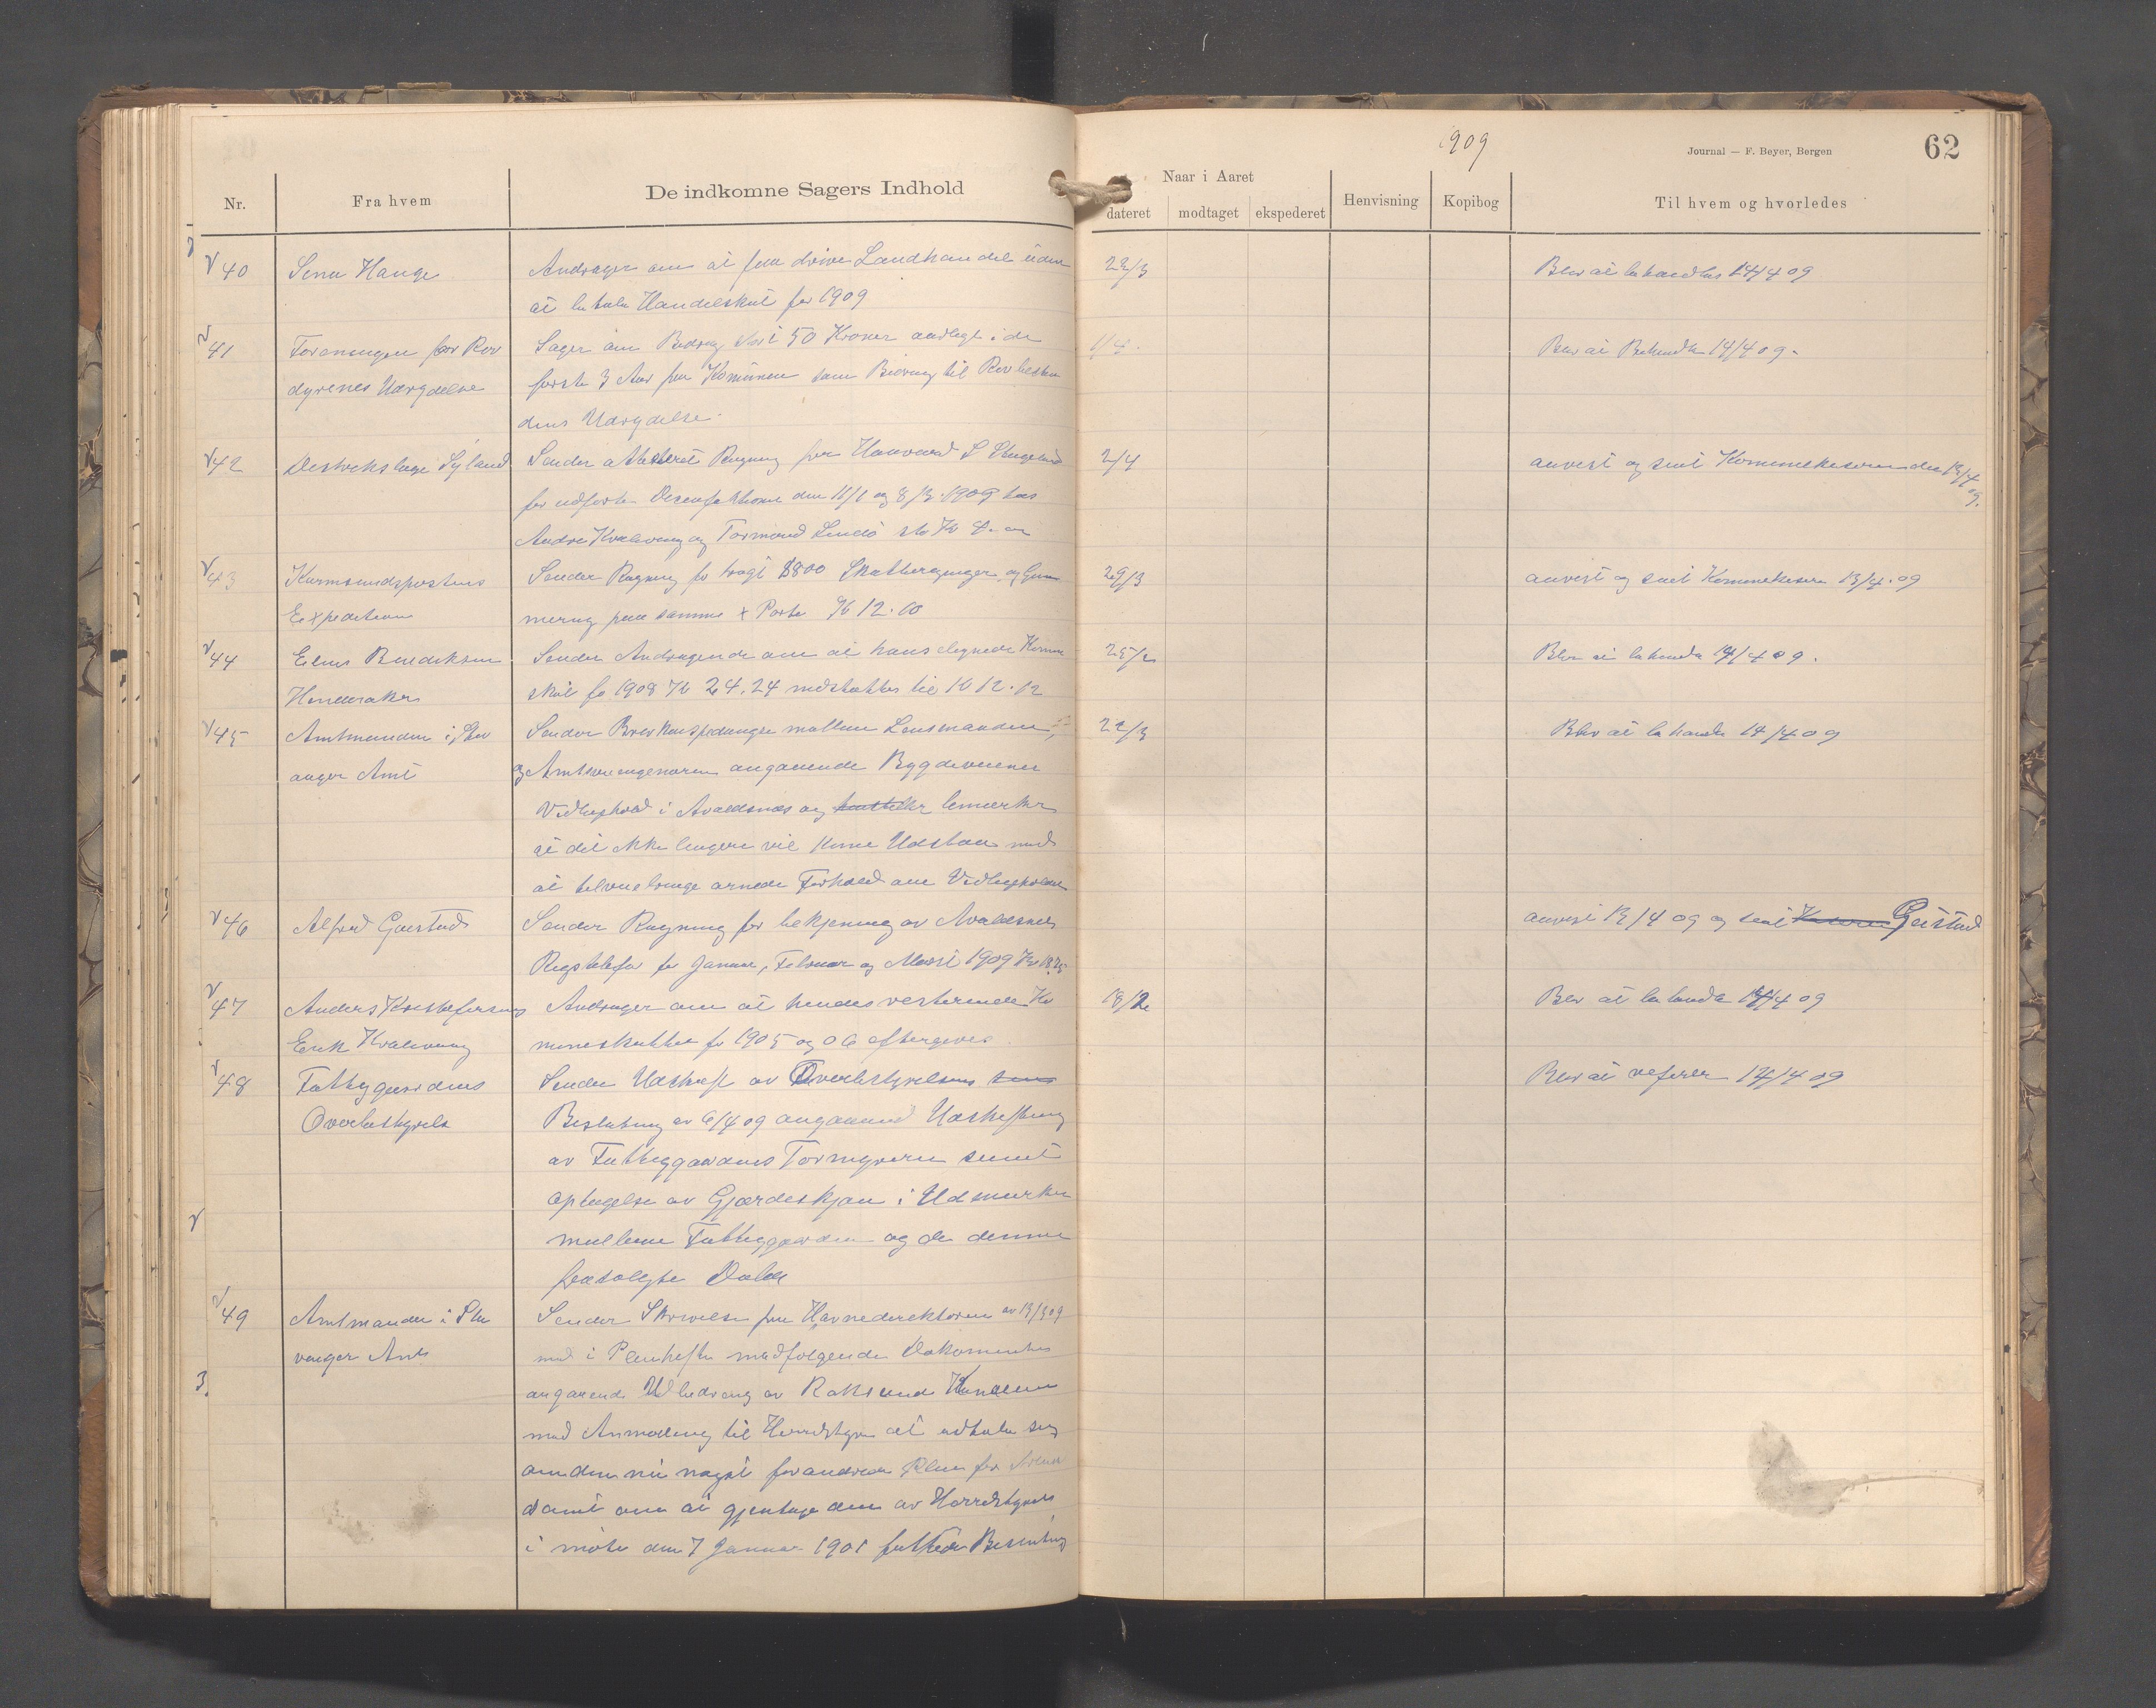 1909
62
Journal — F. Beyer, Bergen
Nr.
Fra hvem
De indkomne Sagers Indhold
Naar i Aaret
dateret
modtaget
ekspederet
Henvisning
Kopibog
Til hvem og hvorledes
40 Sena Hauge Andrager om at faa drive Landhandel uden 22/3 Blev at behandles 14/4 09
at betale Handelskat for 1909
41 Foreningen for Rov Søger om Bidrag stort 50 Kroner aarligt i de 1/4. Blev at Behandle 14/4 09.
dyrenes Udrydelse første 3 Aar fra Komunen som Bidrag til Rov
dens Udrydelse.
42 Destriktslæge Syland Sender attesteret Regning for Haavard S 2/4 anvist og sent Kommunekasseren den 13/4 09.
for udførte Desenfektioner den 11/1 og 8/3. 1909 hos
Andre Kvalevaag og Tormod
43 Karmsundspostens Sender Regning for trygt 1800 Skatteregninger og Gum 29/3 anvist og sent Kommunekasseren 13/4. 09
Expedition mering paa samme + Porto Kr 12.00
44 Elias Bendiksen Sender Andragende om at hans elignede Komm 25/2 Blev at behandle 14/4 09.
skat for 1908 Kr 24.24 nedsættes til Kr 12.12
45 Amtmanden i Stav Sender Brevkorrespondange mellem Lensmanden 22/3 Blev at behandle 14/4 09
anger Amt og Amtsveiingeniøren angaaende Bygdeveienes
Vedligehold i Avaldsnes og bemærker
at det ikke lengere vil kunne Udstaa med
at tilveiebringe ordnede Forhold om Vedligeholdet
46 Alfred Gjerstad Sender Regning for betjening av Avaldsnes anvist 13/4 09 og sent Geistad
Rigstelefon for Januar, Februar og Marts 1909 Kr 18.75
47 Anders Kristofersens Andrager om at hendes resterende Ko 18/2 Blev at behandle 14/4 09
Enk Kvalevaag muneskatter for 1905 og 06 eftergives.
48 Fattiggaardens Sender Udskrift av Overbestyrelsens Blev at referer 14/4 09
Overbestyrelse Beslutning av 6/4 09 angaaende Udskiftning
av Fattiggaardens Torvmyrene samt
optagelse av Gjærdeskjøn i Udmarken
mellem Fattiggaarden og de denne
frasolgte Dele
49 Amtmanden i Sta Sender Skrivelse fra Havnedirektøren av 13/3 09
vanger Amt med i Planhefte medfølgende Dokomenter
angaaende Udbedring av Røksund Kanalen
med Anmodning til Herredstyre at udtale sig
om den nu noget forandrede Plan for
samt om at gjentage den av Herredstyret
i møte den 7 Januar 1901 fattede Beslutning
3.